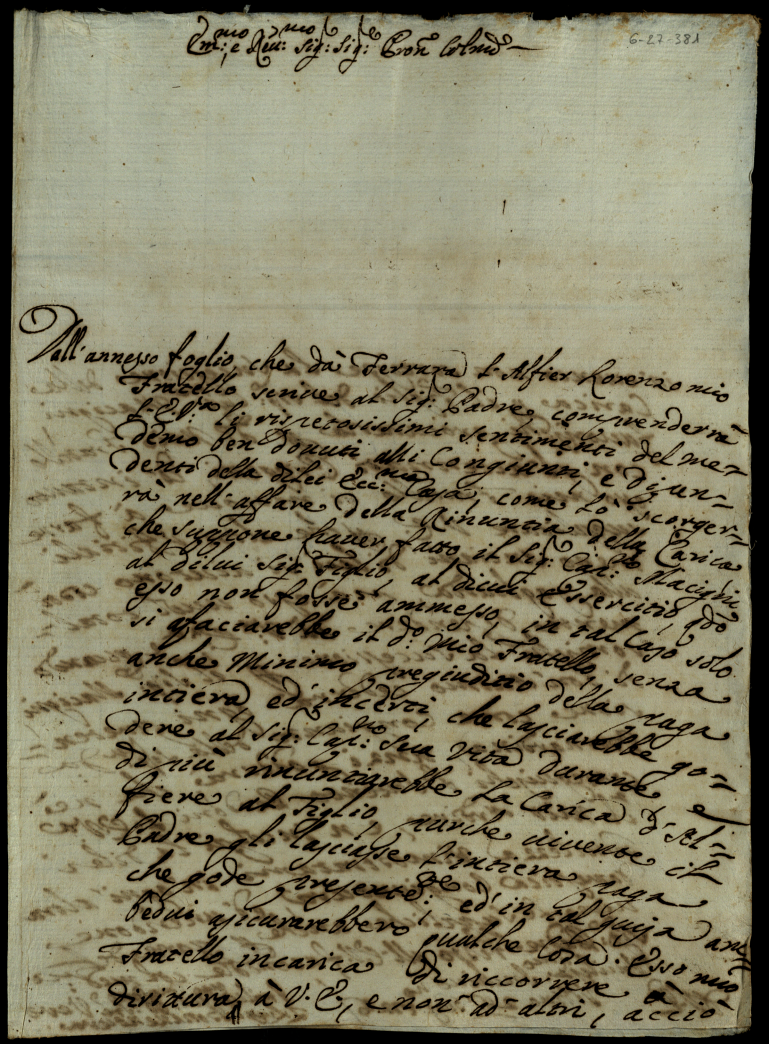 6-27-381
Em:mo e Reu:mo Sig:r Sig:r Pron Colmo
Dall'annesso foglio, che dà Ferrara l'Alfier Lorenzo mio
Fratello scriue al Sig:r Padre, comprenderrà
l'E.V:ra li rispetosissimi sentimenti del me-
demo ben douuti alli Congiunti, e Dipen-
denti della dilei Ecc:ma Casa, come lò scorger-
rà nell'affare della Rinuntia della Carica
che suppone hauer fatto il Sig:r Cap:no Macigni
al dilui Sig:r Figlio, al dicui Essercitio, qdo
esso non fosse ammesso, in tal caso solo
si afaciarebbe il do: mio Fratello, senza
anche Minimo pregiuditio della paga
intiera, ed'incerti, che lasciarebbe go-
dere al Sig:r Cap:no sua vita durante, e
di più rinuntiarebbe la Carica d'Al-
fiere al Figlio, purche uiuente il
Padre gli lasciasse l'intiera paga
che gode presente:te, ed'in tal guisa am-
bedui assicurarebbero qualche cosa. Esso mio
Fratello incarica di riccorrere à
dirittura à V.E, e non' ad' altri, acciò